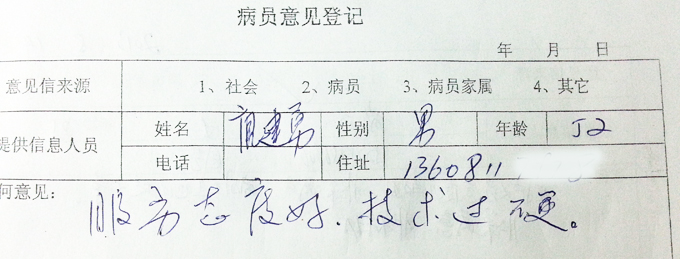 病员意见登记
年 月 日
意见信来源 1、社会 2、病员 3、病员家属 4、其它
提供信息人员 姓名 建勇 性别 男 年龄 52
电话 住址 1360811
何意见:
服务态度好.技术过硬。